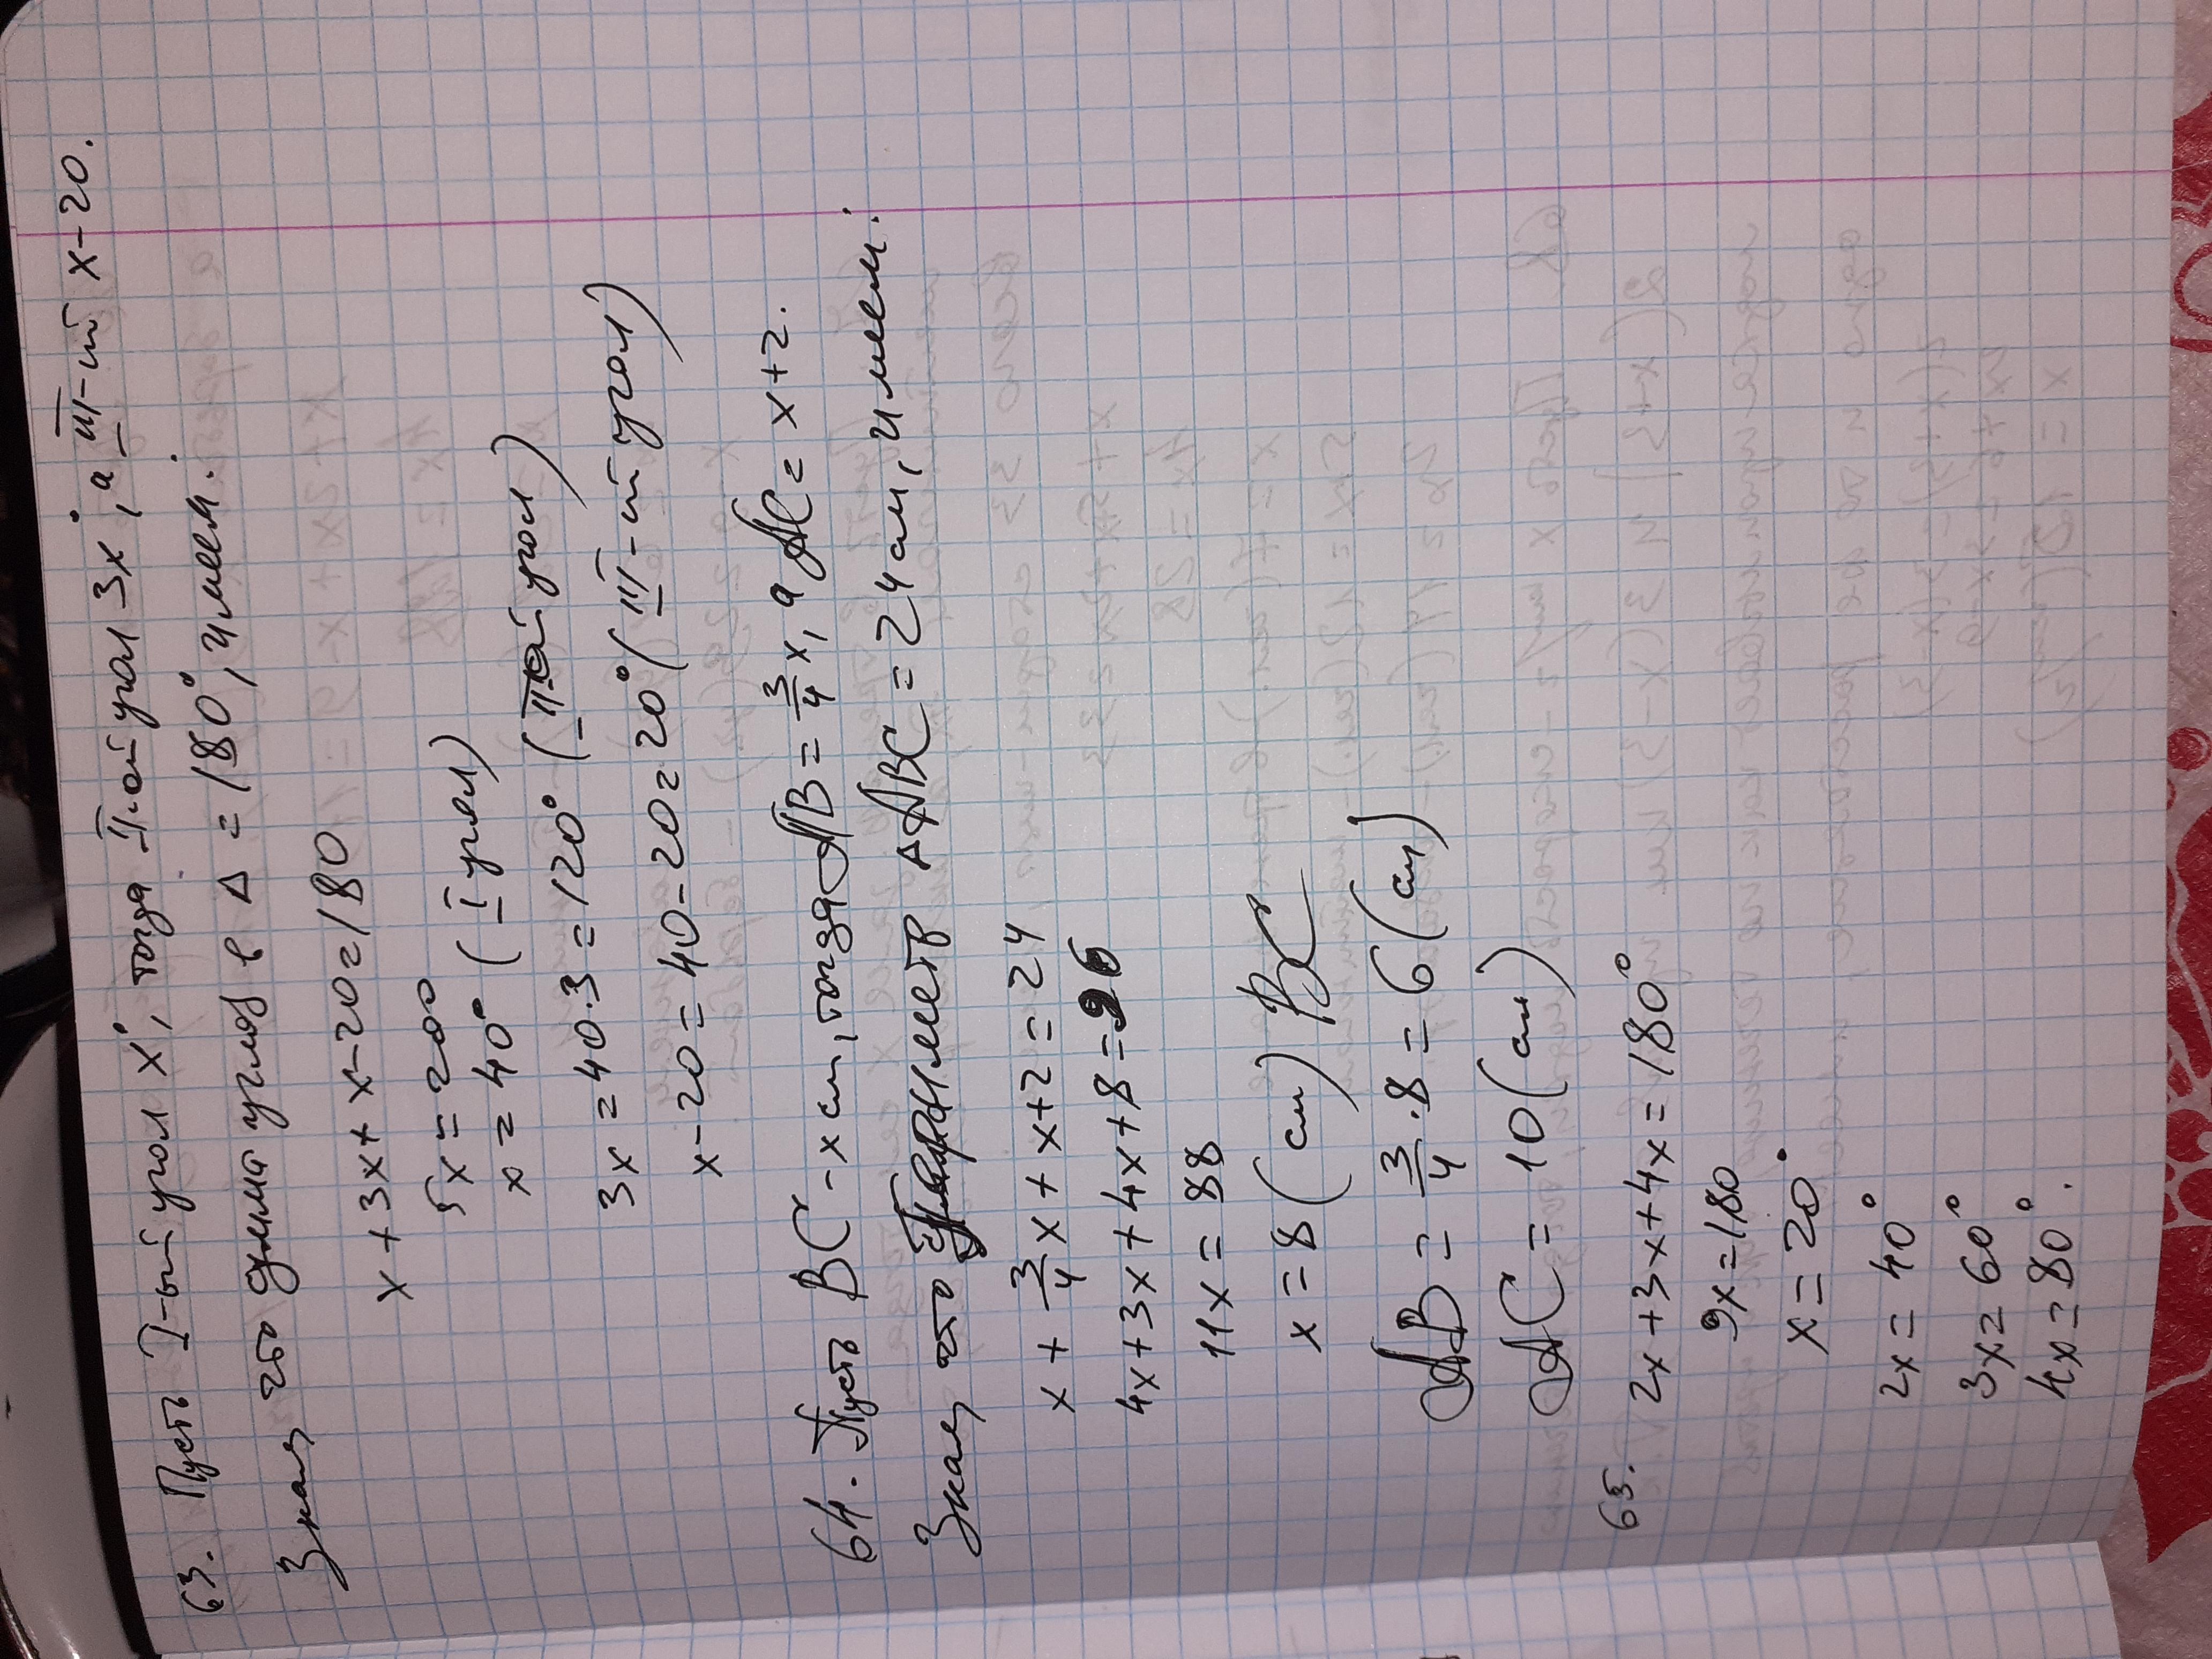 63. Пусть I-ый угол x°, тогда II-ой угол 3x°, а III-ий x-20.
Зная, что сумма углов в Δ = 180°, имеем:
x + 3x + x-20=180
5x = 200
x = 40° (I угол)
3x = 40·3 = 120° (II-ой угол)
x-20 = 40-20=20° (III-ий угол)
64. Пусть BC - x см, тогда AB = 3/4 x, а AC = x+2.
Зная, что Периметр ΔABC = 24 см, имеем:
x + 3/4 x + x+2 = 24
4x+3x+4x+8=96
11x = 88
x = 8 (см) BC
AB = 3/4 · 8 = 6 (см)
AC = 10 (см)
65. 2x+3x+4x = 180°
9x=180
x = 20°
2x = 40°
3x = 60°
4x = 80°.